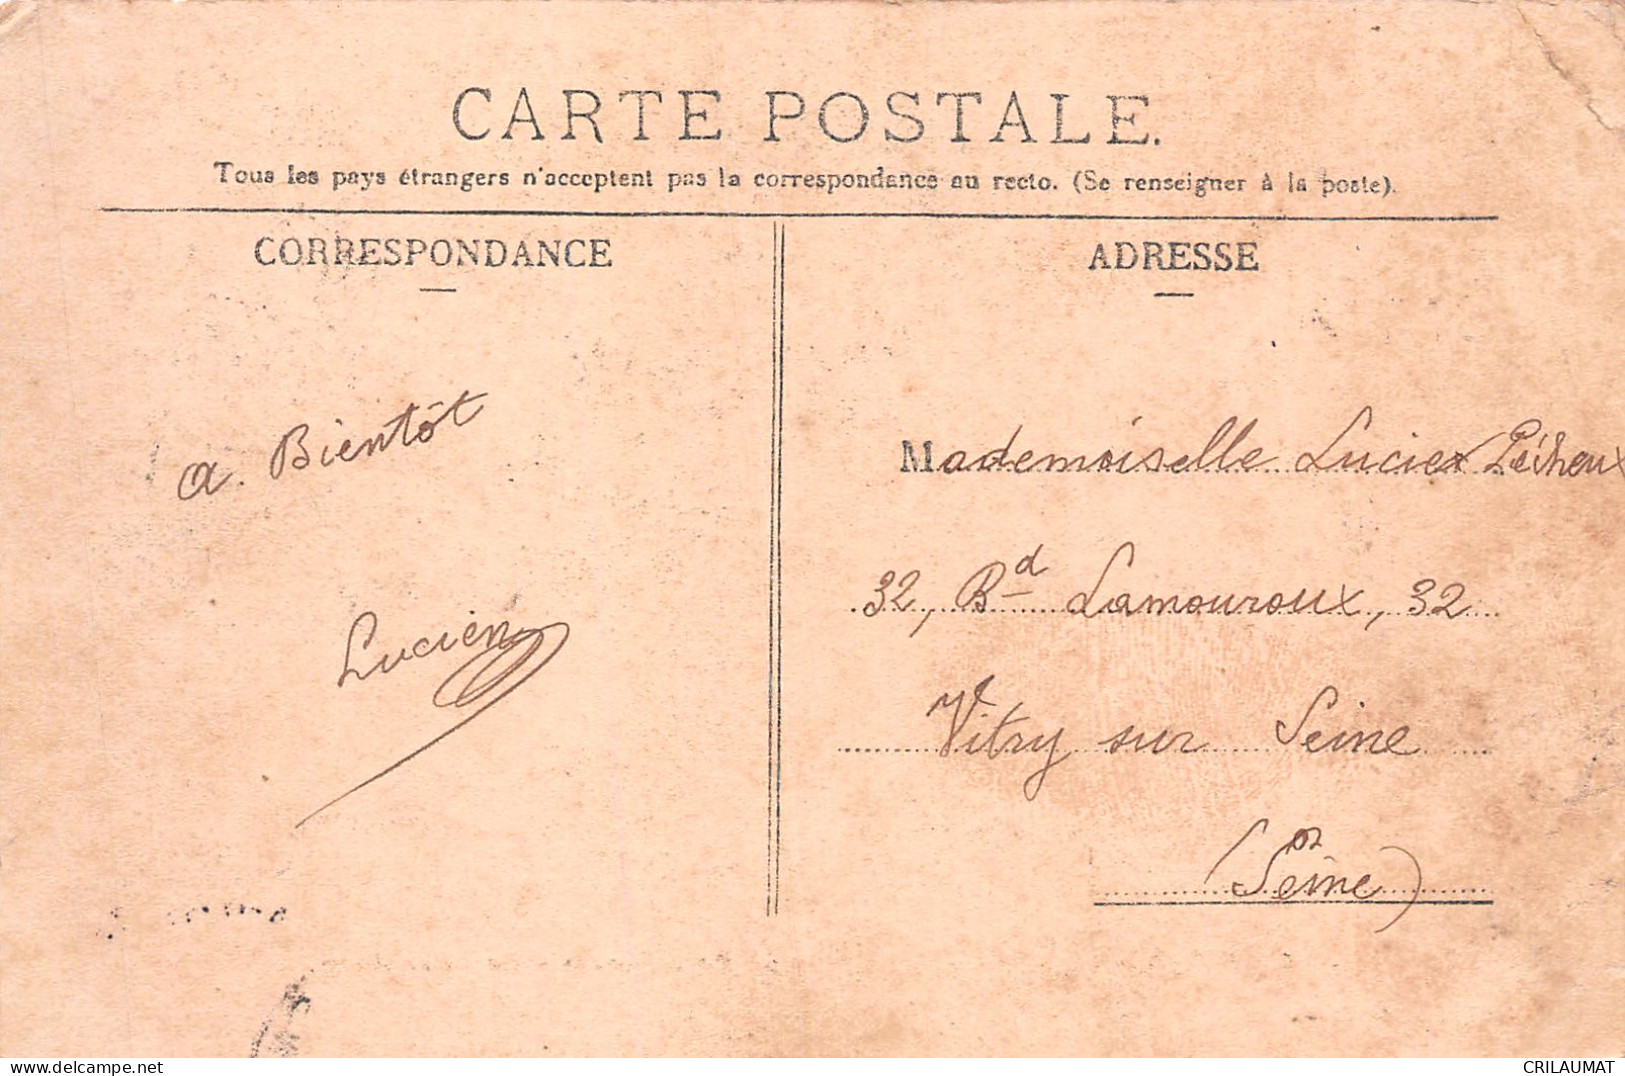 CARTE POSTALE.
Tous les pays étrangers n'acceptent pas la correspondance au recto. (Se renseigner à la poste).
CORRESPONDANCE
a. Bientôt
Lucien
ADRESSE
Mademoiselle Lucie Pécheux
32, Bd Lamouroux, 32
Vitry sur Seine
(Seine)
www.delcampe.net
CRILAUMAT